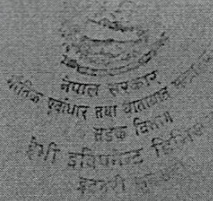 नेपाल सरकार
भौतिक पूर्वाधार तथा यातायात
सडक विभाग
हेभी इक्विपमेन्ट डिभिजन
इटहरी